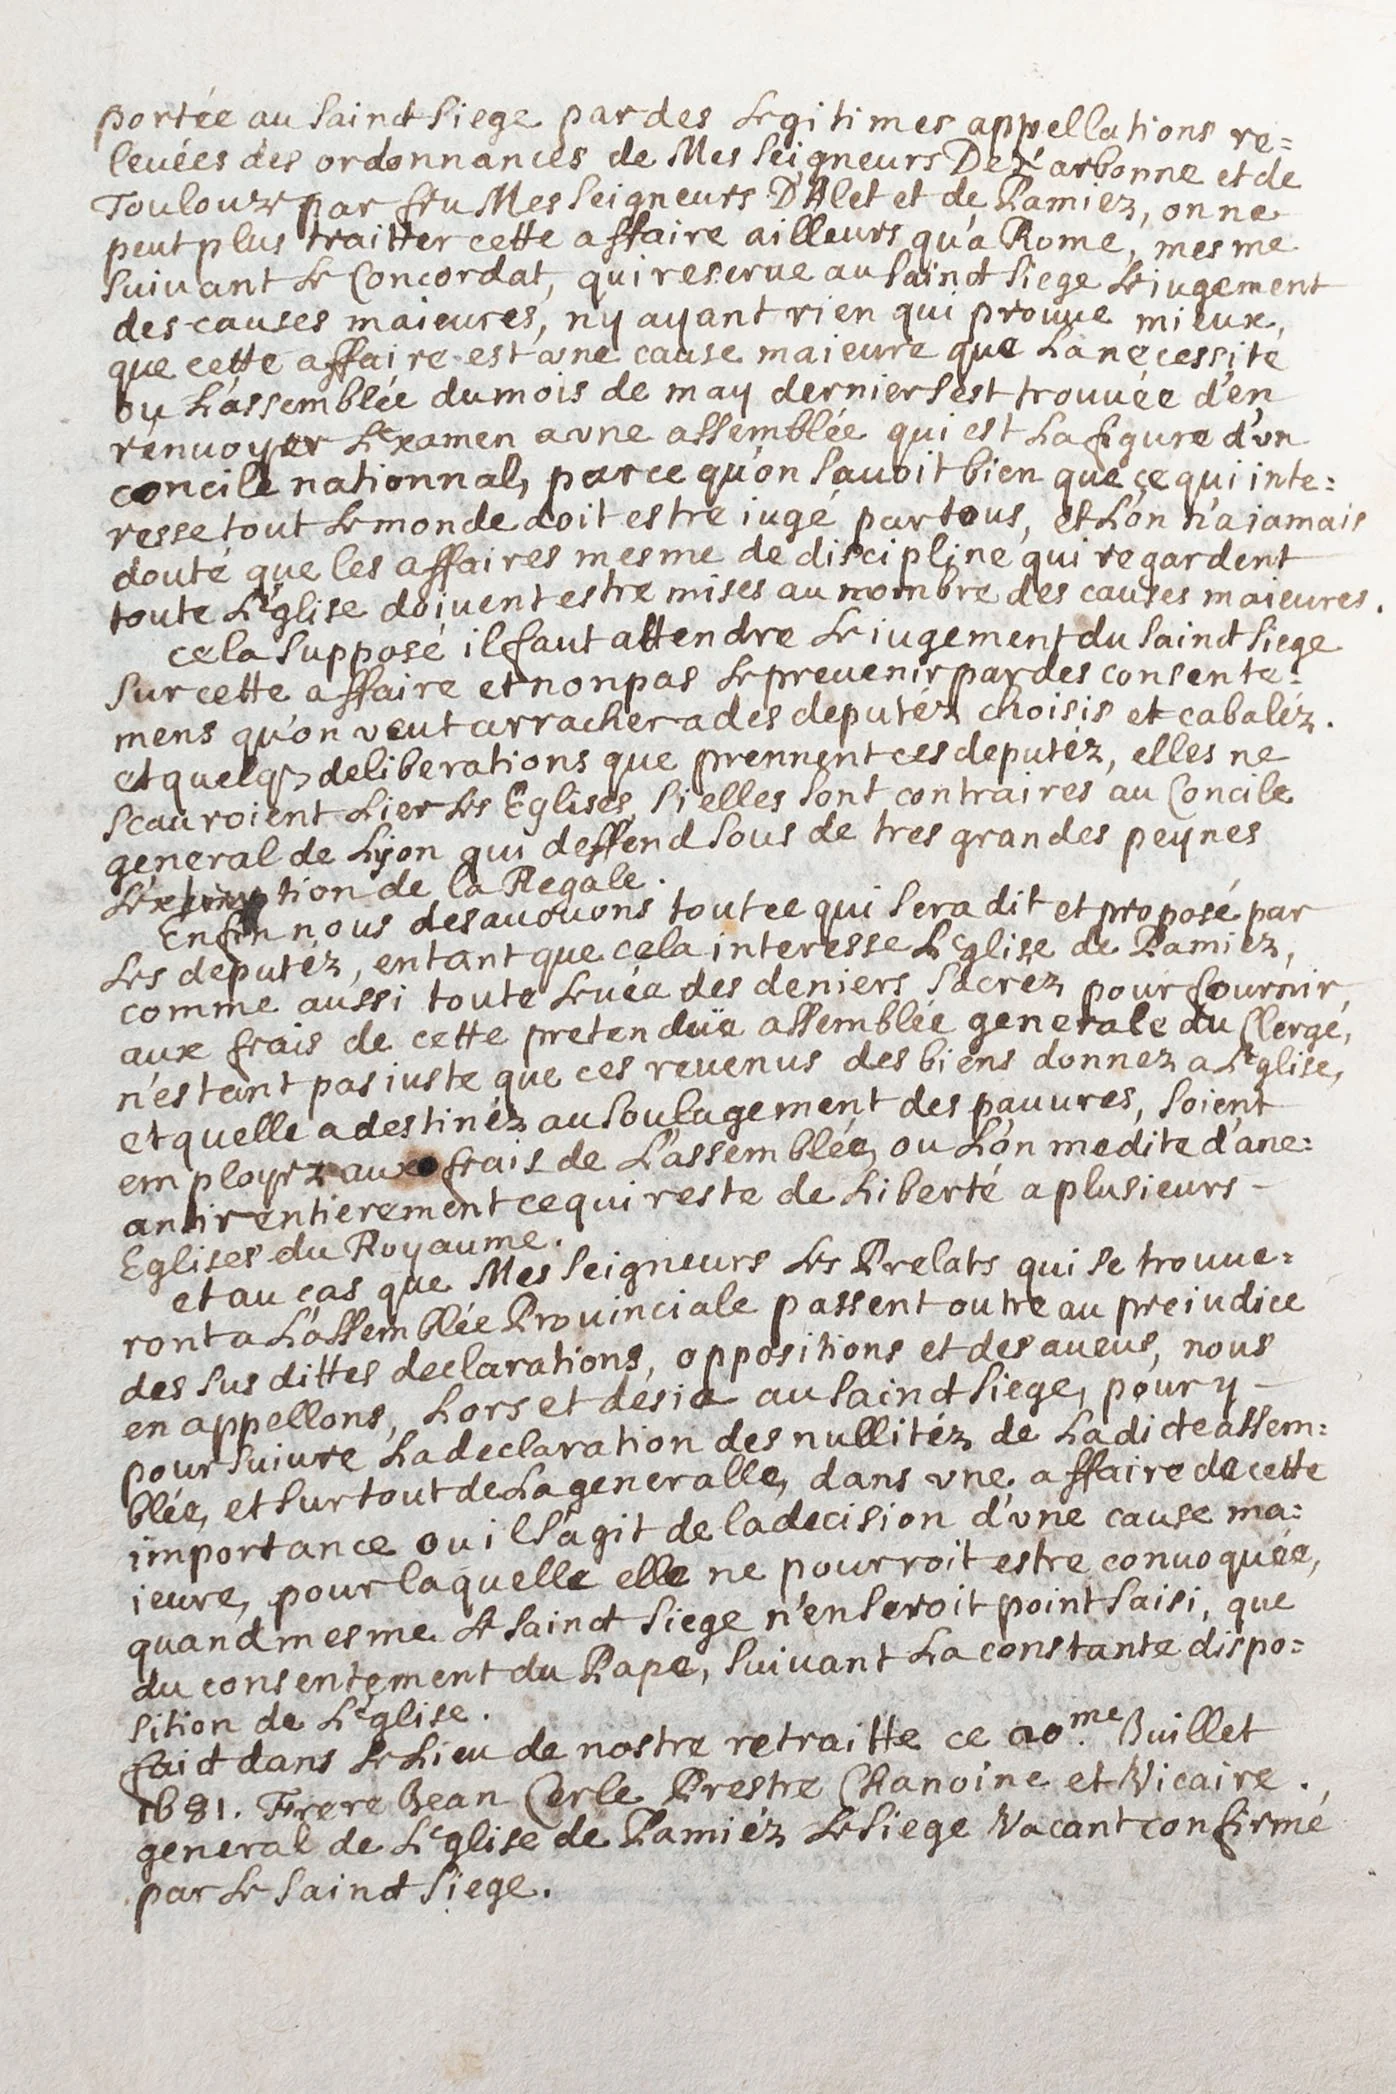 portée au Sainct Siege par des Legitimes appellations re=
levées des ordonnances de Mes Seigneurs De Narbonne et de
Toulouze par feu Mes Seigneurs D'Alet et de Pamiez, on ne
peut plus traitter cette affaire ailleurs qu'a Rome, mesme
Suivant Le Concordat, qui reserve au Sainct Siege Le iugement
des causes maieures, n'y ayant rien qui prouve mieux,
que cette affaire est une cause maieure que La necessité
ou L'assemblée du mois de may dernier S'est trouvée d'en
renvoyer L'examen a une assemblée qui est La figure d'un
concile nationnal, parce qu'on Savoit bien que ce qui inte=
resse tout Le monde doit estre iugé par tous, et L'on n'a iamais
douté que les affaires mesme de discipline qui regardent
toute L'eglise doivent estre mises au nombre des causes maieures.
cela Supposé il faut attendre Le iugement du Sainct Siege
Sur cette affaire et non pas Le prevenir par des consente=
mens qu'on veut arracher a des deputéz choisis et cabaléz.
et quelqs deliberations que prennent ces deputéz, elles ne
Scauroient Lier Les Eglises, Si elles Sont contraires au Concile
general de Lyon qui deffend Sous de tres grandes peynes
tion de la Regale.
Enfin nous desavouons tout ce qui Sera dit et proposé par
Les deputéz, entant que cela interesse L'eglise de Pamiez,
comme aussi toute Levée des deniers Sacréz pour fournir
aux frais de cette pretenduë assemblée generale du Clergé,
n'estant pas iuste que ces revenus des biens donnez a L'eglise,
et quelle a destinéz au Soulagement des pauvres, Soient
employez aux frais de L'assemblée, ou L'on medite d'ane=
antir entierement ce qui reste de Liberté a plusieurs -
Eglises du Royaume.
et au cas que Mes Seigneurs Les Prelats qui Se trouve=
ront a L'assemblée Provinciale passent outre au preiudice
des Sus dittes declarations, oppositions et desaveus, nous
en appellons, Lors et desia au Sainct Siege, pour y -
pour Suivre La declaration des nullitéz de La dicte assem=
blée, et Sur tout de La generalle, dans une affaire de cette
importance ou il S'agit de la decision d'une cause ma=
ieure, pour laquelle elle ne pourroit estre convoquée,
quand mesme Le Sainct Siege n'en Seroit point Saisi, que
du consentement du Pape, Suivant La constante dispo=
sition de L'eglise.
faict dans Le Lieu de nostre retraitte ce 20.me Juillet
1681. Frere Jean Cerle Prestre Chanoine et Vicaire.
general de L'eglise de Pamiéz Le Siege Vacant confirmé
par Le Sainct Siege.